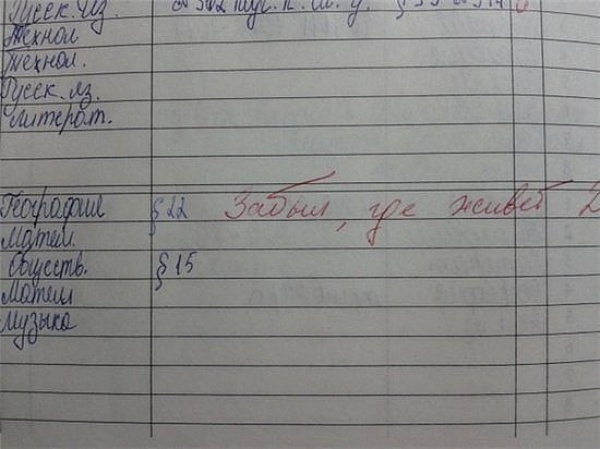 Русск. яз. §
Технол
Технол.
Русск. яз.
Литерат.
География § 22 Забыл, где живёт 2
Матем.
Обществ. § 15
Матем
Музыка